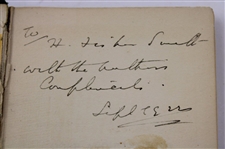 To
H. Fisher
with the Authors
Compliments.
Sept